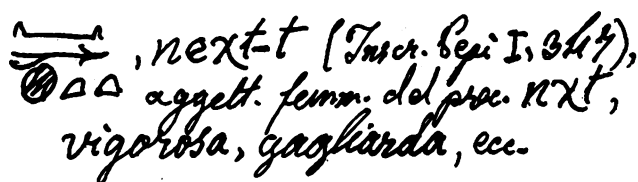 , next-t (Inscr. Sepi I, 347),
aggett. femm. del prec. nχt,
vigorosa, gagliarda, ecc.